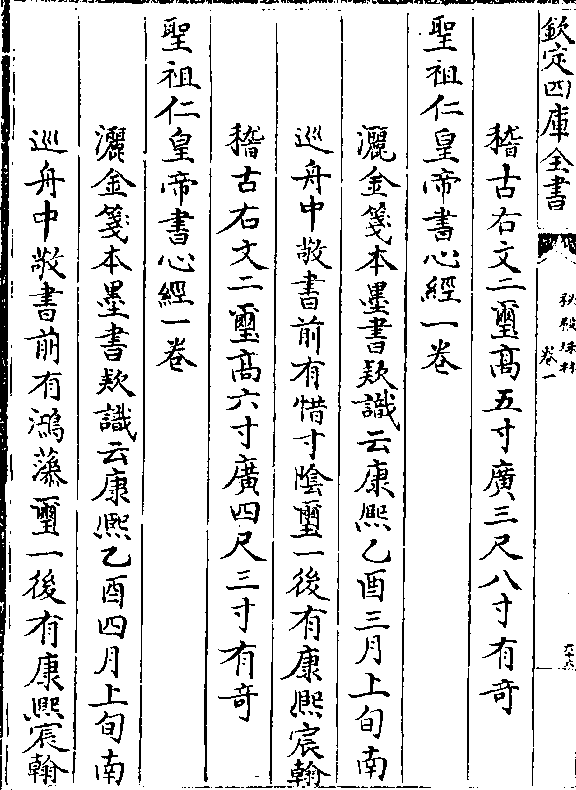 欽定四庫全書
秘殿珠林
卷一
稽古右文二璽高五寸廣三尺八寸有竒
聖祖仁皇帝書心經一卷
灑金箋本墨書欵識云康熙乙酉三月上旬南
巡舟中敬書前有惜寸隂璽一後有康熙宸翰
稽古右文二璽高六寸廣四尺三寸有竒
聖祖仁皇帝書心經一卷
灑金箋本墨書欵識云康熙乙酉四月上旬南
巡舟中敬書前有鴻藻璽一後有康熙宸翰